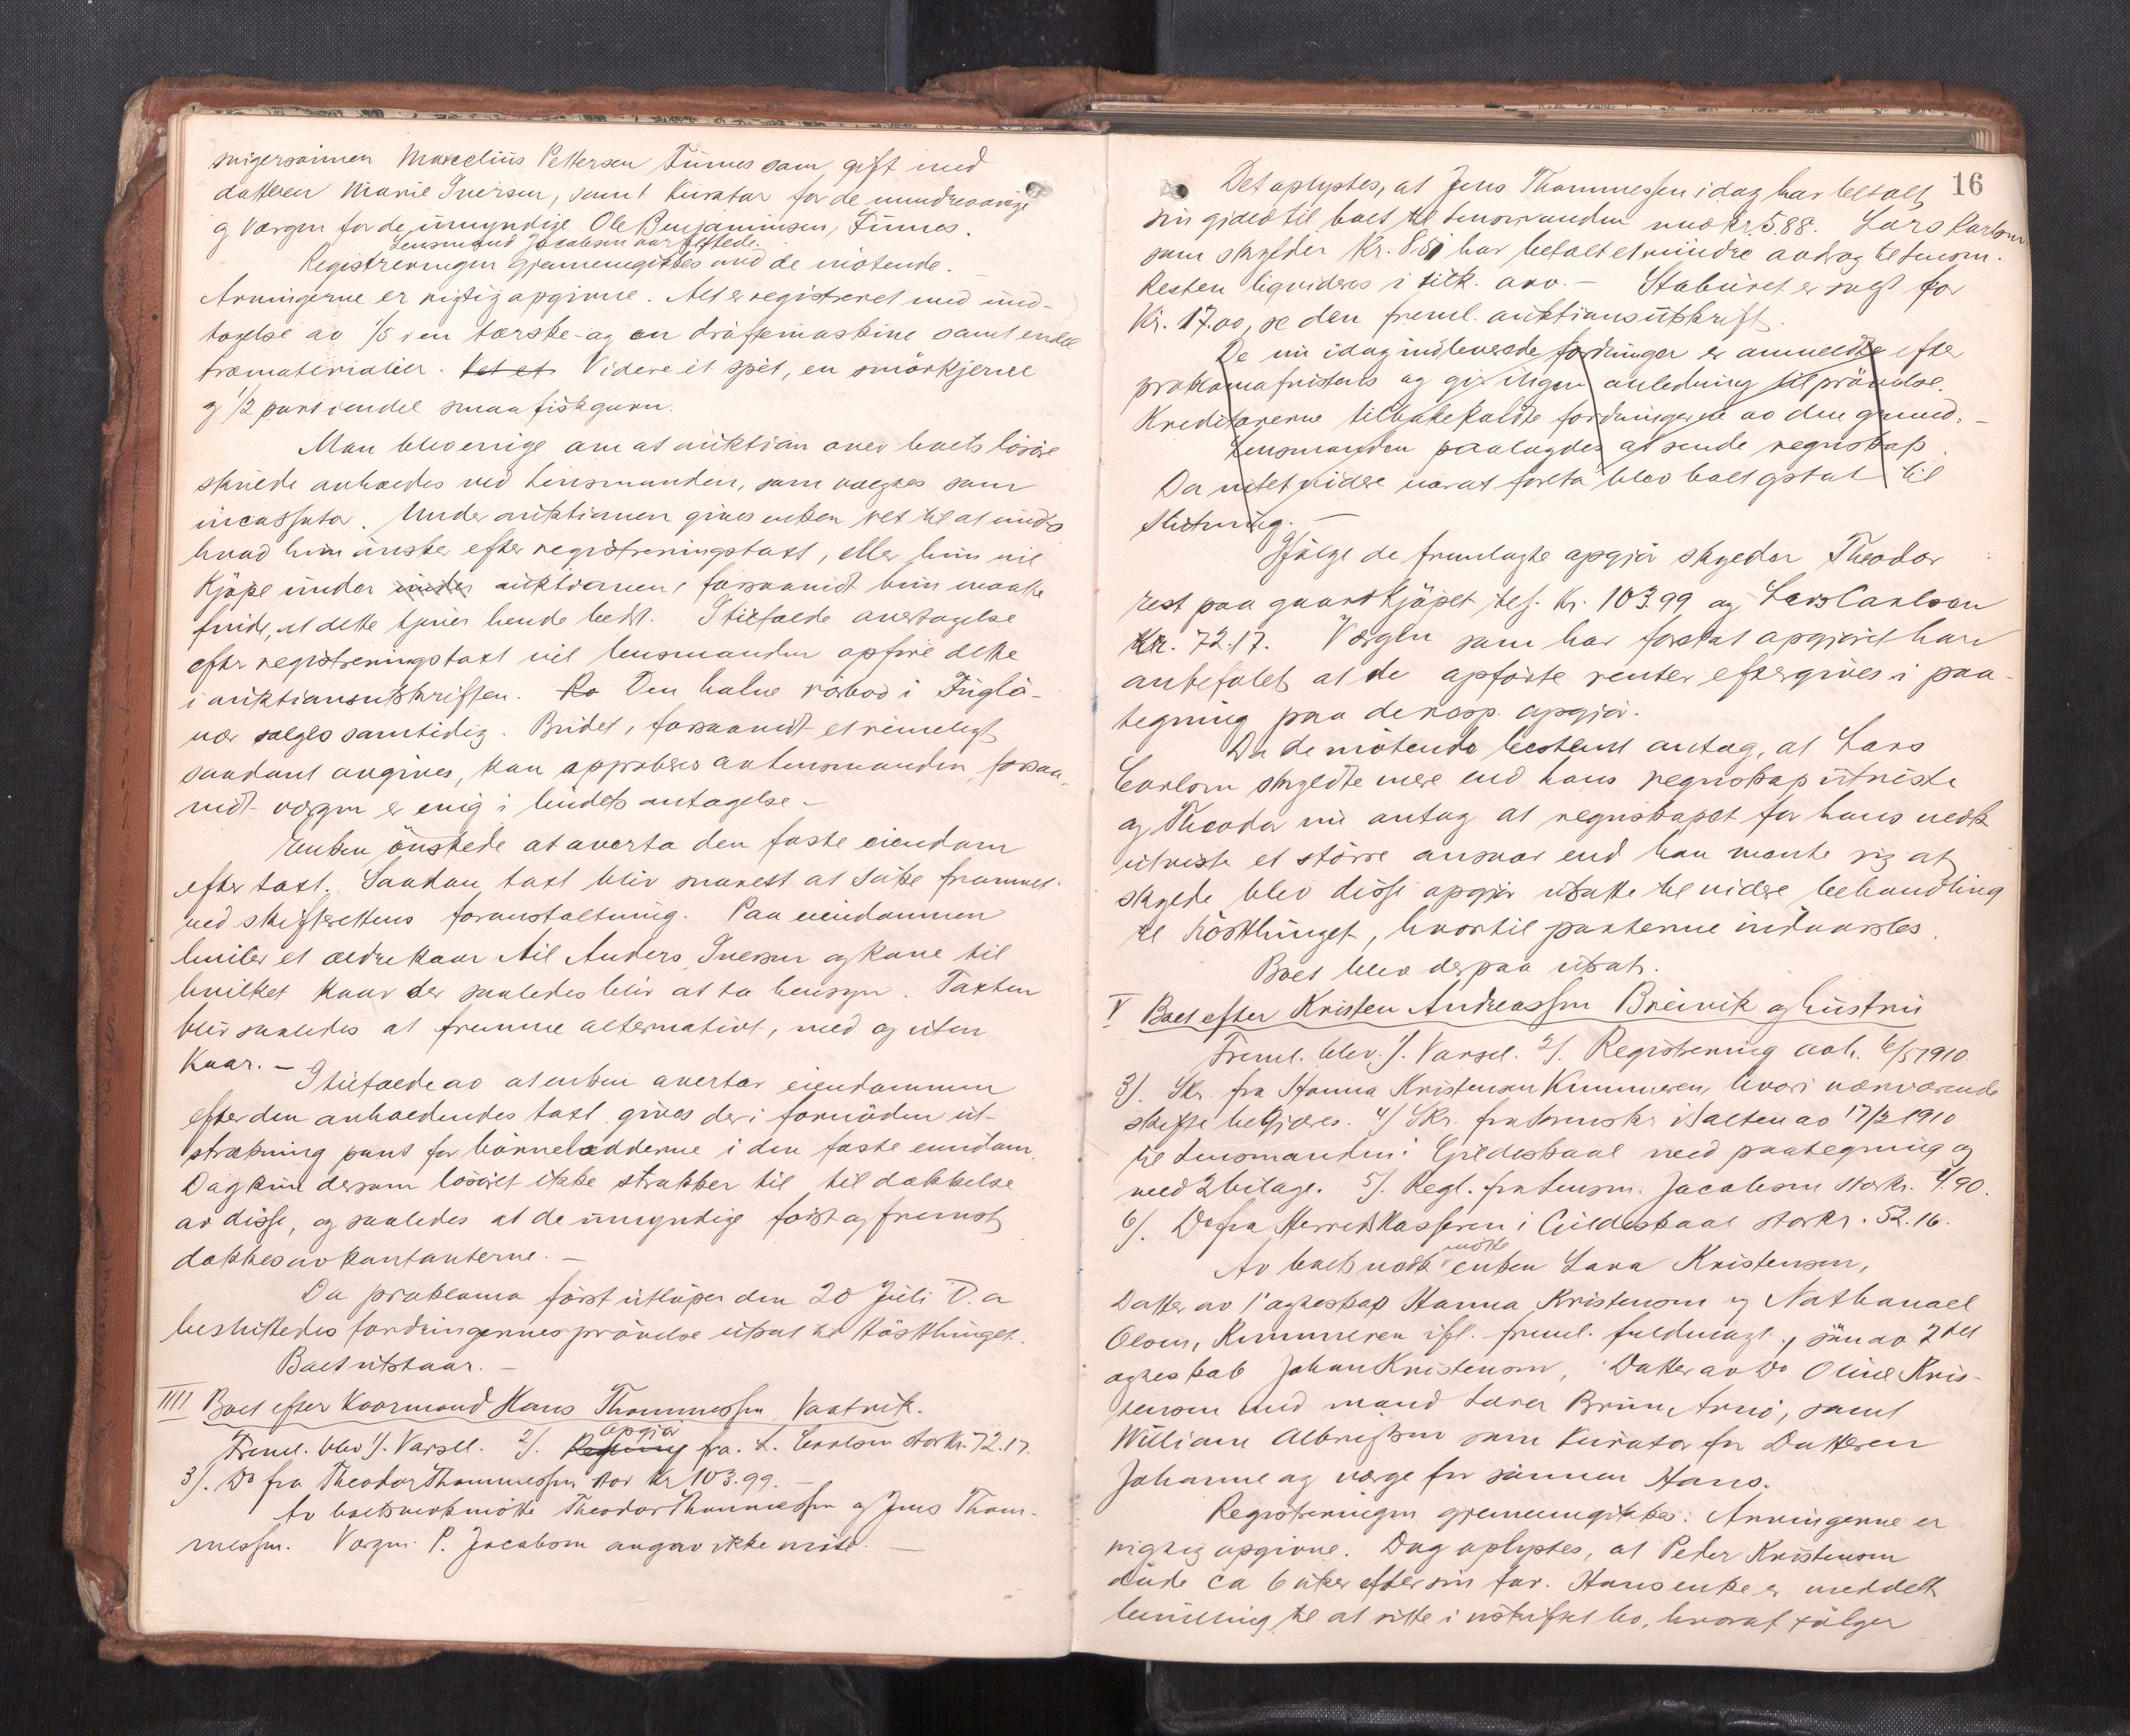 svigersønnen Marcelius Pettersen Finnes som gift med
datteren Marie Iversen, samt Kurator for de mindreaarige
og værgen for de umyndige Ole Benjaminsen, Finnes.
Lensmand Jacobsen var tilstede.
Registreringen gjennemgikkes med de møtende.
Arvingerne er rigtig opgivne. Alt er registreret med und-
tagelse av 1/5 i en tærske- og en drøftemaskine samt endel
træmaterialier. Videre et spet, en smørkjerne
og 1/2 part i endel smaafiskgarn.
Man blev enige om at auktion over boets løsøre
skulde avholdes ved lensmanden, som vælges som
incassator. Under auktionen gives enken ret til at undta
hvad hun ønsker efter registreringstaxt, eller hun vil
kjøpe under under auktionen, forsaavidt hun maatte
finde, at dette tjener hende bedst. I tilfælde overtagelse
efter registreringstaxt vil lensmanden opføre dette
i auktionsutskriften. Den halve robod i Fuglø-
vær sælges samtidig. Budet, forsaavidt et rimeligt
saadant avgives, kan approberes av lensmanden forsaa-
vidt værgen er enig i budets antagelse.-
Enken ønskede at overta den faste eiendom
efter taxt. Saadan taxt blir snarest at søke fremmet
ved skifterettens foranstaltning. Paa eiendommen
hviler et ældre kaar til Anders Iversen og kone til
hvilket kaar der saaledes blir at ta hensyn. Taxten
blir saaledes at fremme alternativt, med og uten
Kaar. -
I tilfælde av at enken overtar eiendommen
efter den avholdendes taxt gives der i fornøden ut-
strækning pant for børnelodderne i den faste eiendom.
Dog kun dersom løsøret ikke strækker til til dækkelse
av disse, og saaledes at de umyndige først og fremst
dækkes av kontanterne. -
Da proklama først utløper den 20 Juli D.a
besluttedes fordringernes prøvelse utsat til Høstthinget.
Boet utstaar. -
IIII Boet efter Kaarmand Hans Thommessen Vaatvik.
Freml. blev 1/. Varsel. 2/. Opgjør fra L. Carlsen stor kr. 72.17.
3/. Do fra Theodor Thommessen stor kr 103.99. -
Av boets vedk møtte Theodor Thommessen og Jens Thom-
messen. Værgen P. Jacobsen angav ikke møte. -
16
Det oplystes, at Jens Thommessen idag har betalt
sin gjæld til boet til lensmanden med kr. 5.88. Lars Carlsen
som skylder Kr. 8.81 har betalt et mindre avdrag til lensm.
Resten liqvideres i tilk. arv. - Staburet er solgt for
Kr. 17.00, se den freml. auktionsutskrift.
De nu idag indleverede fordringer er anmeldte efter
proklamafristens og gir ingen anledning til prøvelse.
Kreditorerne tilbakekaldte fordringerne av den grund. -
Lensmanden paalagdes at sende regnskap.
Da intet videre var at foreta blev boet optat til
slutning. -
Ifølge de fremlagte opgjør skylder Theodor
rest paa gaardkjøpet tils. Kr. 103.99 og Lars Carlsen
Kr. 72.17. Værgen som har forstat opgjøret har
anbefalet at de opførte renter eftergives i paa-
tegning paa de resp. opgjør.
Da de møtende bestemt antog, at Lars
Carlsen skyldte mere end hans regnskap utviste
og Theodor nu antog at regnskapet for hans vedk
utviste et større ansvar end han mente sig at
skylde blev disse opgjør utsatte til videre behandling
til Høstthinget, hvortil parterne indvarsles.
Boet blev derpaa utsat.
V Boet efter Kristen Andreassen Breivik og hustru
Freml. blev. 1/. Varsel. 2/. Registrering avh. 6/5 1910
3/. Skr. fra Hanna Kristensen Kummeren, hvori nærværende
skifte begjæres. 4/ Skr. fra Sorenskr. i Salten av 17/2 1910
til Lensmanden i Gildeskaal med paategning og
med 2 bilage. 5/. Regl. fra lensm. Jacobsen stor kr. 4.90.
6/. Do fra Herredskassereren i Gildeskaal stor kr. 52.16.
Av boets vedk møtte enken Lava Kristensen,
Datter av 1' egteskap Hanna Kristensen og Nathanael
Olsen, Kummeren ifl. freml. fuldmagt, søn av 2det
egteskab Johan Kristensen, Datter av Do Oline Kris-
tensen med mand Lærer Bruun Arnø, samt
William Albrigtsen som Kurator for Datteren
Johanne og værge for sønnen Hans.
Registreringen gjennemgikkes. Arvingerne er
rigtig opgivne. Dog oplystes, at Peder Kristensen
døde ca 6 uker efter sin far. Hans enke er meddelt
bevilling til at sitte i uskiftet bo, hvoraf følger